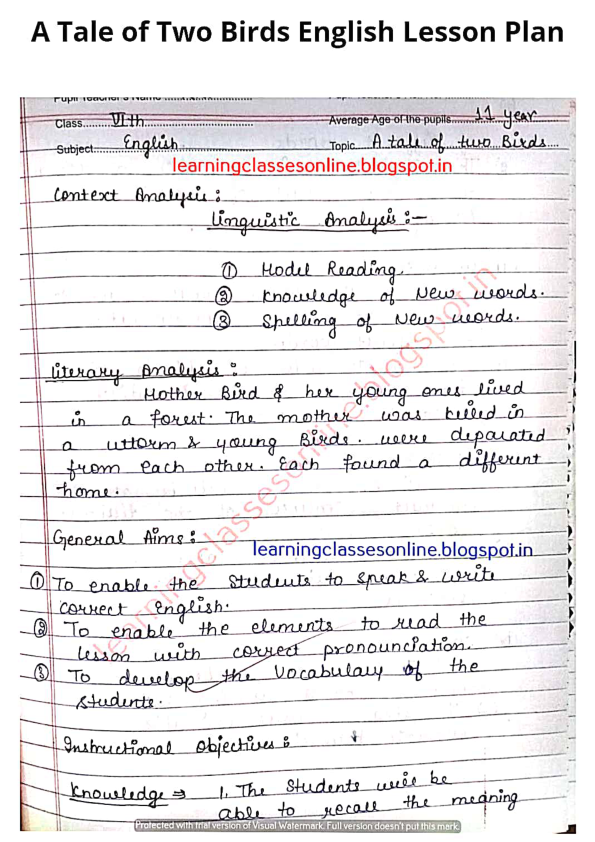 A Tale of Two Birds English Lesson Plan
Pupil Teacher's Name
Class......VIth......
Average Age of the pupils......11 year
Subject......English......
Topic......A tale of two Birds......
learningclassesonline.blogspot.in
Context Analysis :
Linguistic Analysis :-
① Model Reading.
② Knowledge of New words.
③ Spelling of New words.
Literary Analysis :
Mother Bird & her young ones lived
in a forest. The mother was killed in
a uttorm & young Birds. were deparated
from each other. Each found a different
home.
General Aims :
learningclassesonline.blogspot.in
① To enable the Students to speak & write
correct English.
② To enable the elements to read the
lesson with correct pronounciation.
③ To develop the Vocabulary of the
students.
Instructional Objectives :
Knowledge ⇒ 1. The Students will be
able to recall the meaning
learningclassesonline.blogspot.in
Protected with trial version of Visual Watermark. Full version doesn't put this mark.